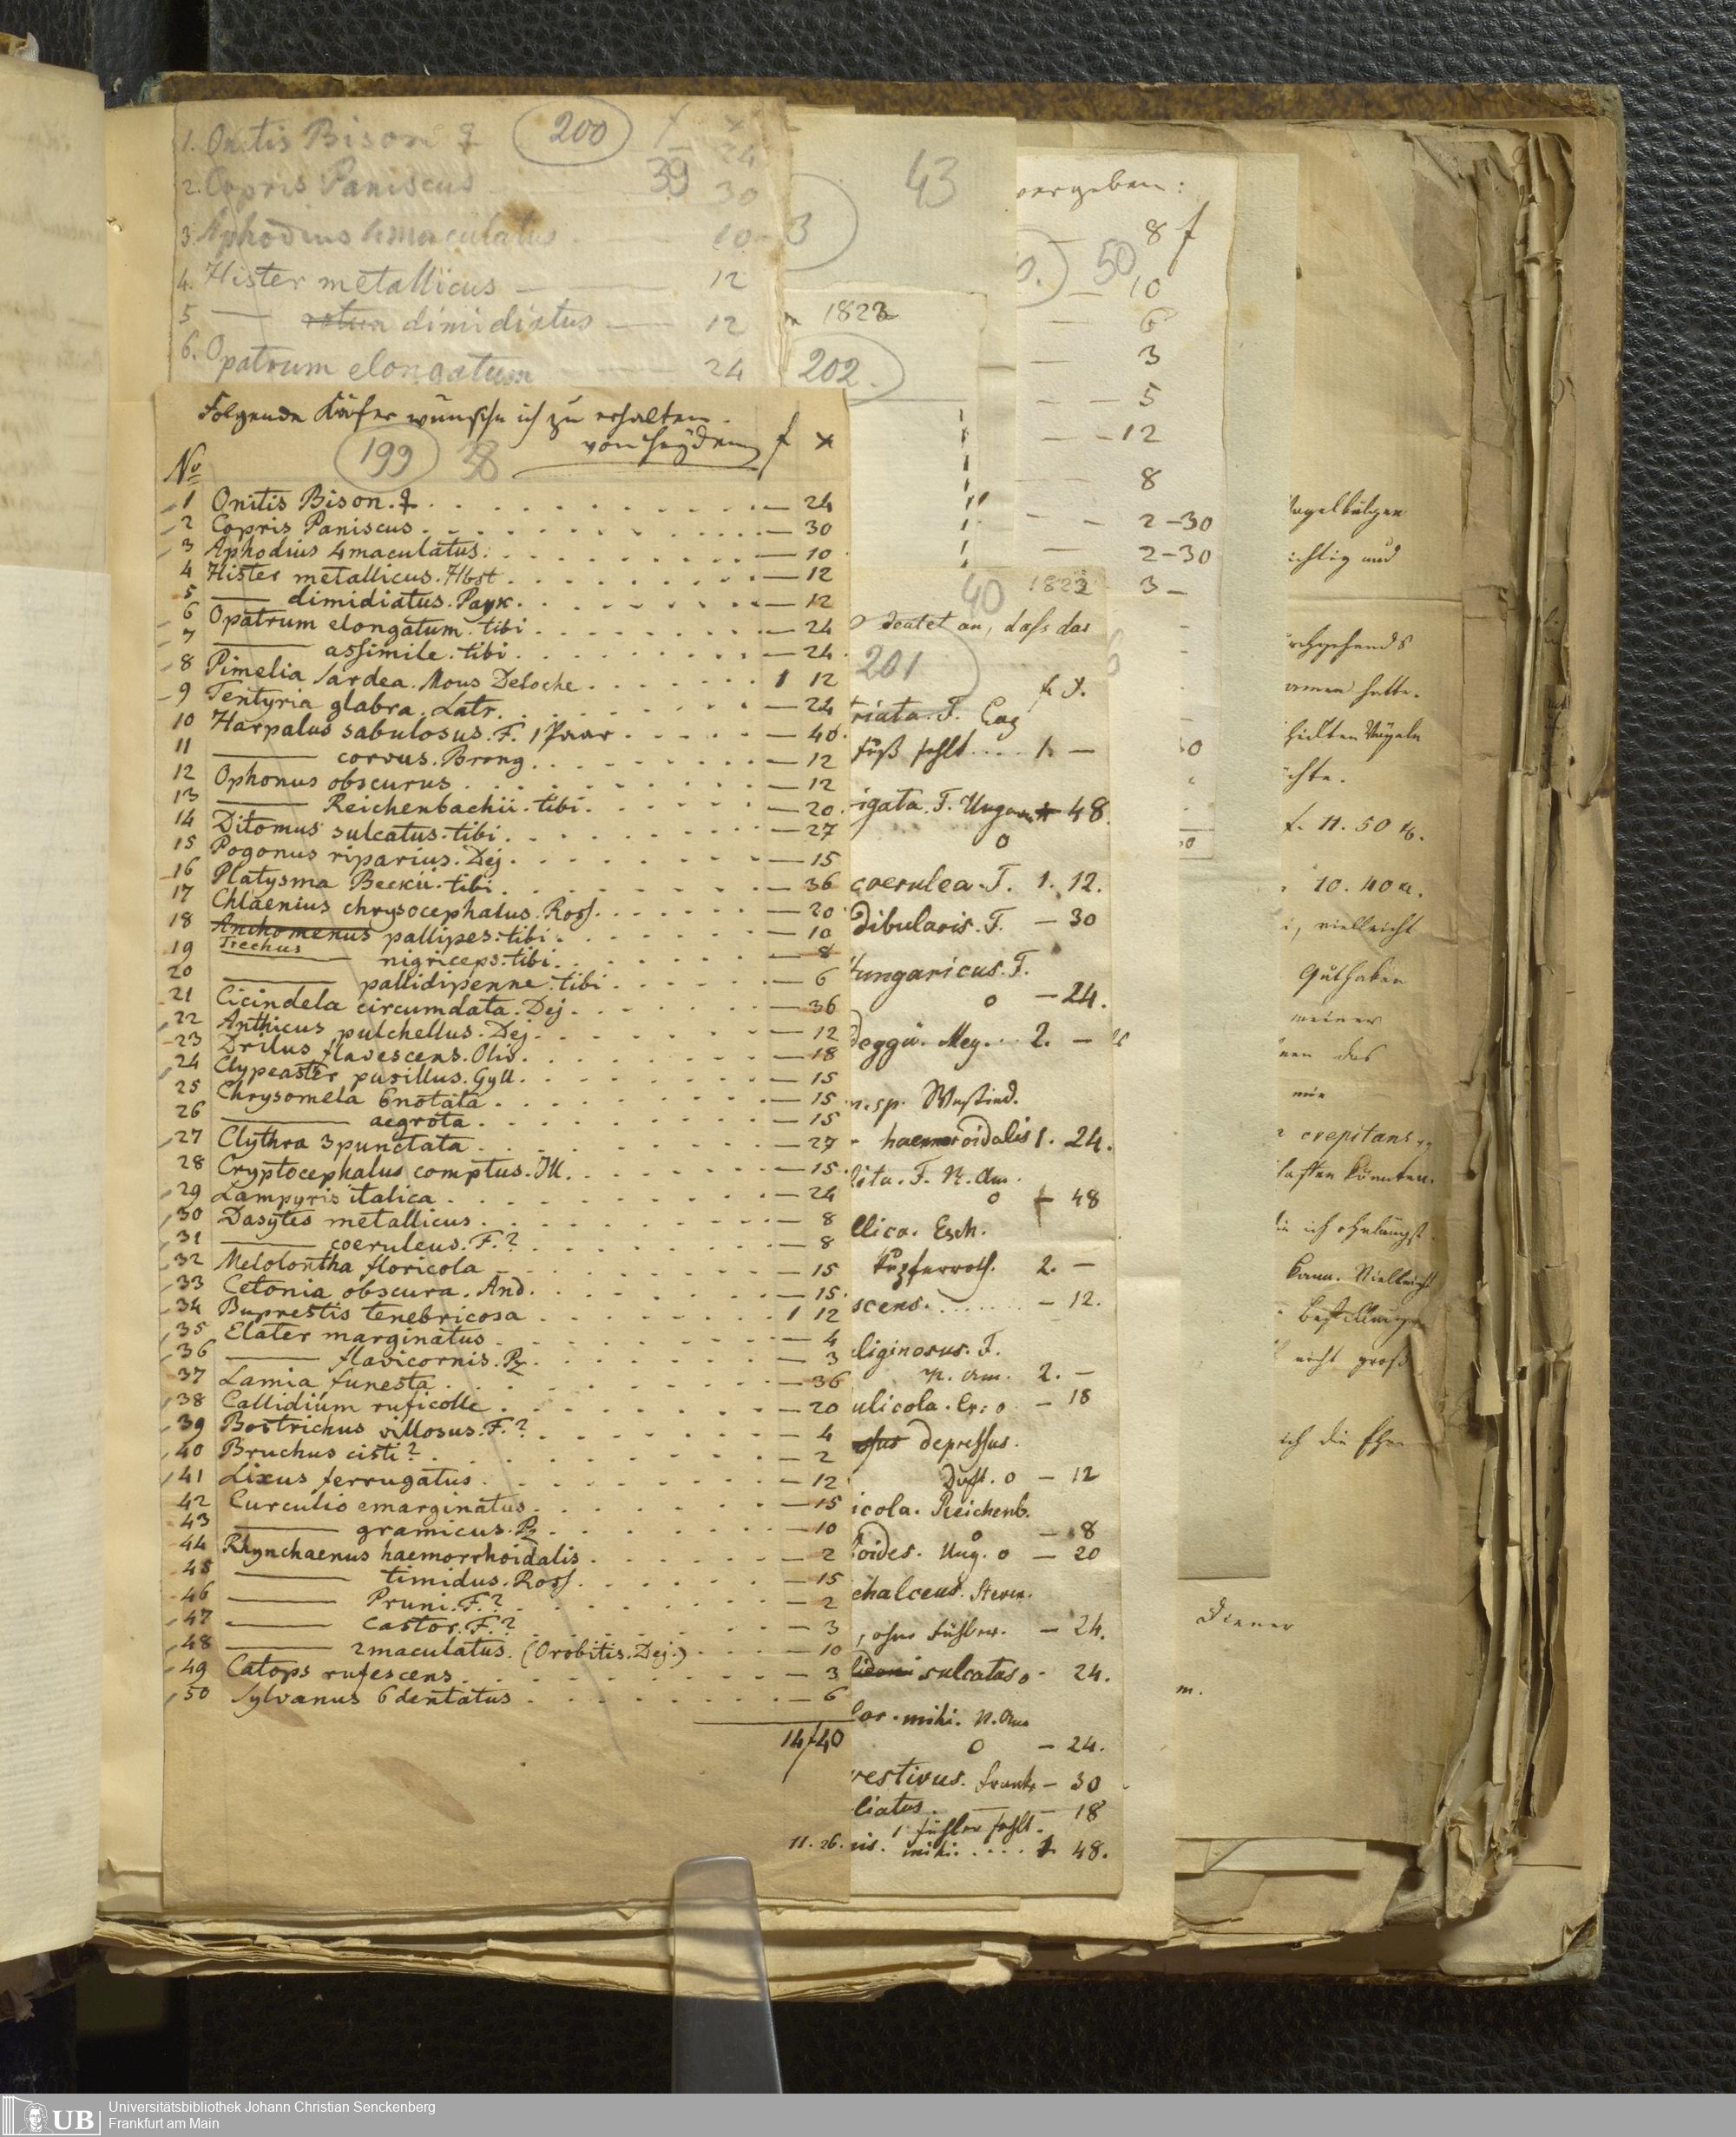 1. Onitis Bison ♀ 200 f x
— 24
2. Copris Paniscus — 39 30
3. Aphodius 4maculatus — 10
4. Hister metallicus — 12
5 — dimidiatus — 12
6. Opatrum elongatum — 24
Folgende Käfer wünsche ich zu erhalten.
von Heyden f x
199 38
No
1 Onitis Bison. ♀ — 24
2 Copris Paniscus — 30
3 Aphodius 4maculatus. — 10
4 Hister metallicus. Hbst — 12
5 — dimidiatus. Payk. — 12
6 Opatrum elongatum. tibi — 24
7 — assimile. tibi — 24
8 Pimelia sardea. Mous Deloche 1 12
9 Tentyria glabra. Latr. — 24
10 Harpalus sabulosus. F. 1 Paar — 40
11 — corvus. Brong. — 12
12 Ophonus obscurus — 12
13 — Reichenbachii. tibi. — 20
14 Ditomus sulcatus. tibi. — 27
15 Pogonus riparius. Dej. — 15
16 Platysma Beckii. tibi — 36
17 Chlaenius chrysocephalus. Ross. — 20
18 Anchomenus pallipes. tibi. — 10
19 Trechus nigriceps. tibi. — 8
20 — pallidipenne. tibi — 6
21 Cicindela circumdata. Dej — 36
22 Anthicus pulchellus. Dej — 12
23 Drilus flavescens. Oliv. — 18
24 Clypeaster pusillus. Gyll. — 15
25 Chrysomela 6notata — 15
26 — aegrota — 15
27 Clythra 3punctata — 27
28 Cryptocephalus comptus. Ill. — 15
29 Lampyris italica — 24
30 Dasytes metallicus — 8
31 — coeruleus. F.? — 8
32 Melolontha floricola — 15
33 Cetonia obscura. And. — 15
34 Buprestis tenebricosa 1 12
35 Elater marginatus — 4
36 — flavicornis. Pz — 3
37 Lamia funesta — 36
38 Callidium ruficolle — 20
39 Bostrichus villosus. F.? — 4
40 Bruchus cisti? — 2
41 Lixus ferrugatus — 12
42 Curculio emarginatus — 15
43 — gramicus. Pz — 10
44 Rhynchaenus haemorrhoidalis — 2
45 — timidus. Ross. — 15
46 — Pruni. F.? — 2
47 — Castor. F.? — 3
48 — 2maculatus. (Orobitis. Dej.) — 10
49 Catops rufescens — 3
50 Sylvanus 6dentatus — 6
14 f 40
43
3
1823
202.
40 1823
o deutet an, dass das
201
triata. F. Cag
fuß fehlt.... 1. —
igata. F. Ungarn 48.
o
coerulea. F. 1. 12.
dibularis. F. — 30
Hungaricus. F.
o — 24.
doggii. Mey... 2. —
n. sp. Westind.
haemoroidalis 1. 24.
lita. F. N. Am.
o 48
llica. Esch.
kupferroth. 2. —
scens. — 12.
liginosus. F.
N. Am. 2. —
ulicola. Cr: o — 18
depressus.
Duft. o — 12
icola. Reichenb.
o — 8
oides. Ung. o — 20
chalceus. Stevn.
, ohne Fühler. — 24.
sulcatus o — 24.
lor. mihi. N. Am
o — 24.
vestivus. Frankr — 30
liatus. — 18
1 fühler fehlt.
11. 26. nis. mihi. .... 1 48.
vergeben:
8 f
50
10
6
3
5
12
8
2 — 30
2 — 30
3 —
Vogelbälgen
ichtig und
rchgehends
amen hatte.
chte.
f. 11. 50 x.
10. 40 x.
i, vielleicht
Guthaben
meiner
nen das
mir
crepitans
lassen könnten.
in ich ohnlängst
kann. Vielleicht
Bestellungen
nicht groß
ich die Ehre
Diener
m.
UB Universitätsbibliothek Johann Christian Senckenberg
Frankfurt am Main